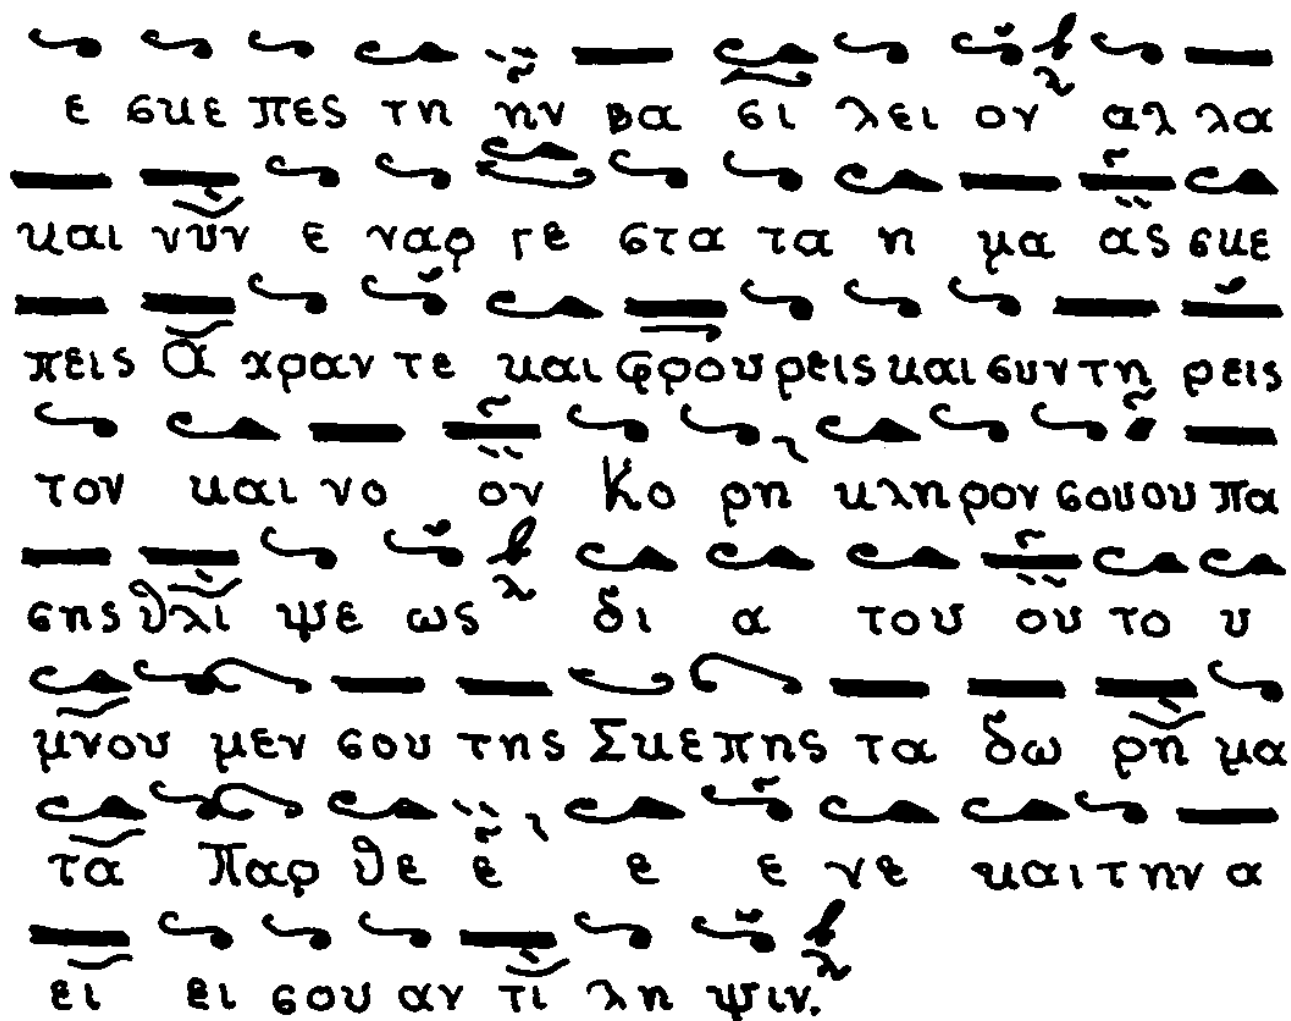 ε σκε πες τη ην βα σι λει ον αλ λα
και νυν ε ναρ γε στα τα η μα ας σκε
πεις Α χραν τε και φρου ρεις και συν τη ρεις
τον και νο ον Κο ρη κλη ρον σου ου πα
σης θλι ψε ως δι α του ου το υ
μνου μεν σου της Σκε πης τα δω ρη μα
τα Παρ θε ε ε ε νε και την α
ει ει σου αν τι λη ψιν.